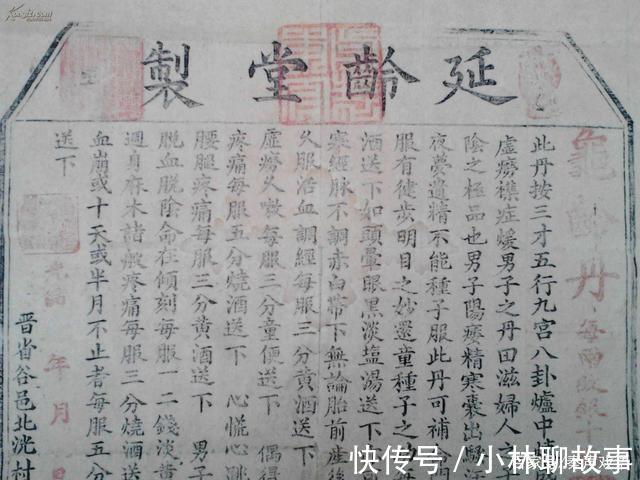 延齡堂製
龜齡丹 每兩紋銀十
此丹按三才五行九宮八卦爐中
虛癆襍症煖男子之丹田滋婦人之子
陰之極品也男子陽痿精寒囊出
夜夢遺精不能種子服此丹可補
服有徒步明目之妙還童種子之
酒送下如頭暈眼黑淡塩湯送下
寒經脉不調赤白帶下無論胎前產後
久服活血調經每服三分黃酒送下
虛癆久嗽每服三分童便送下 偶得
疼痛每服五分燒酒送下 心慌心跳
腰腿疼痛每服三分黃酒送下 男子
脫血脫陰命在傾刻每服一二錢淡黃
遍身麻木諸般疼痛每服三分燒酒送
血崩或十天或半月不止者每服五分
送下
光緒 年 月
晋省谷邑北洸村
快传号/小林聊故事